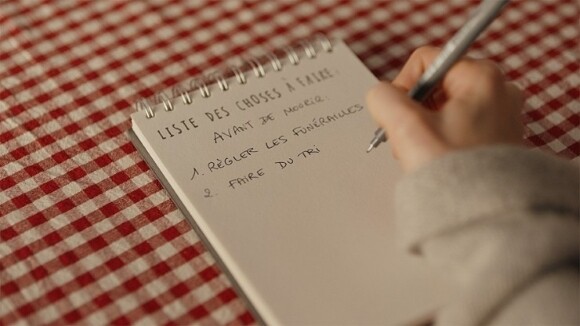 LISTE DES CHOSES À FAIRE.
AVANT DE MOURIR.
1. RÈGLER LES FUNÉRAILLES
2. FAIRE DU TRI